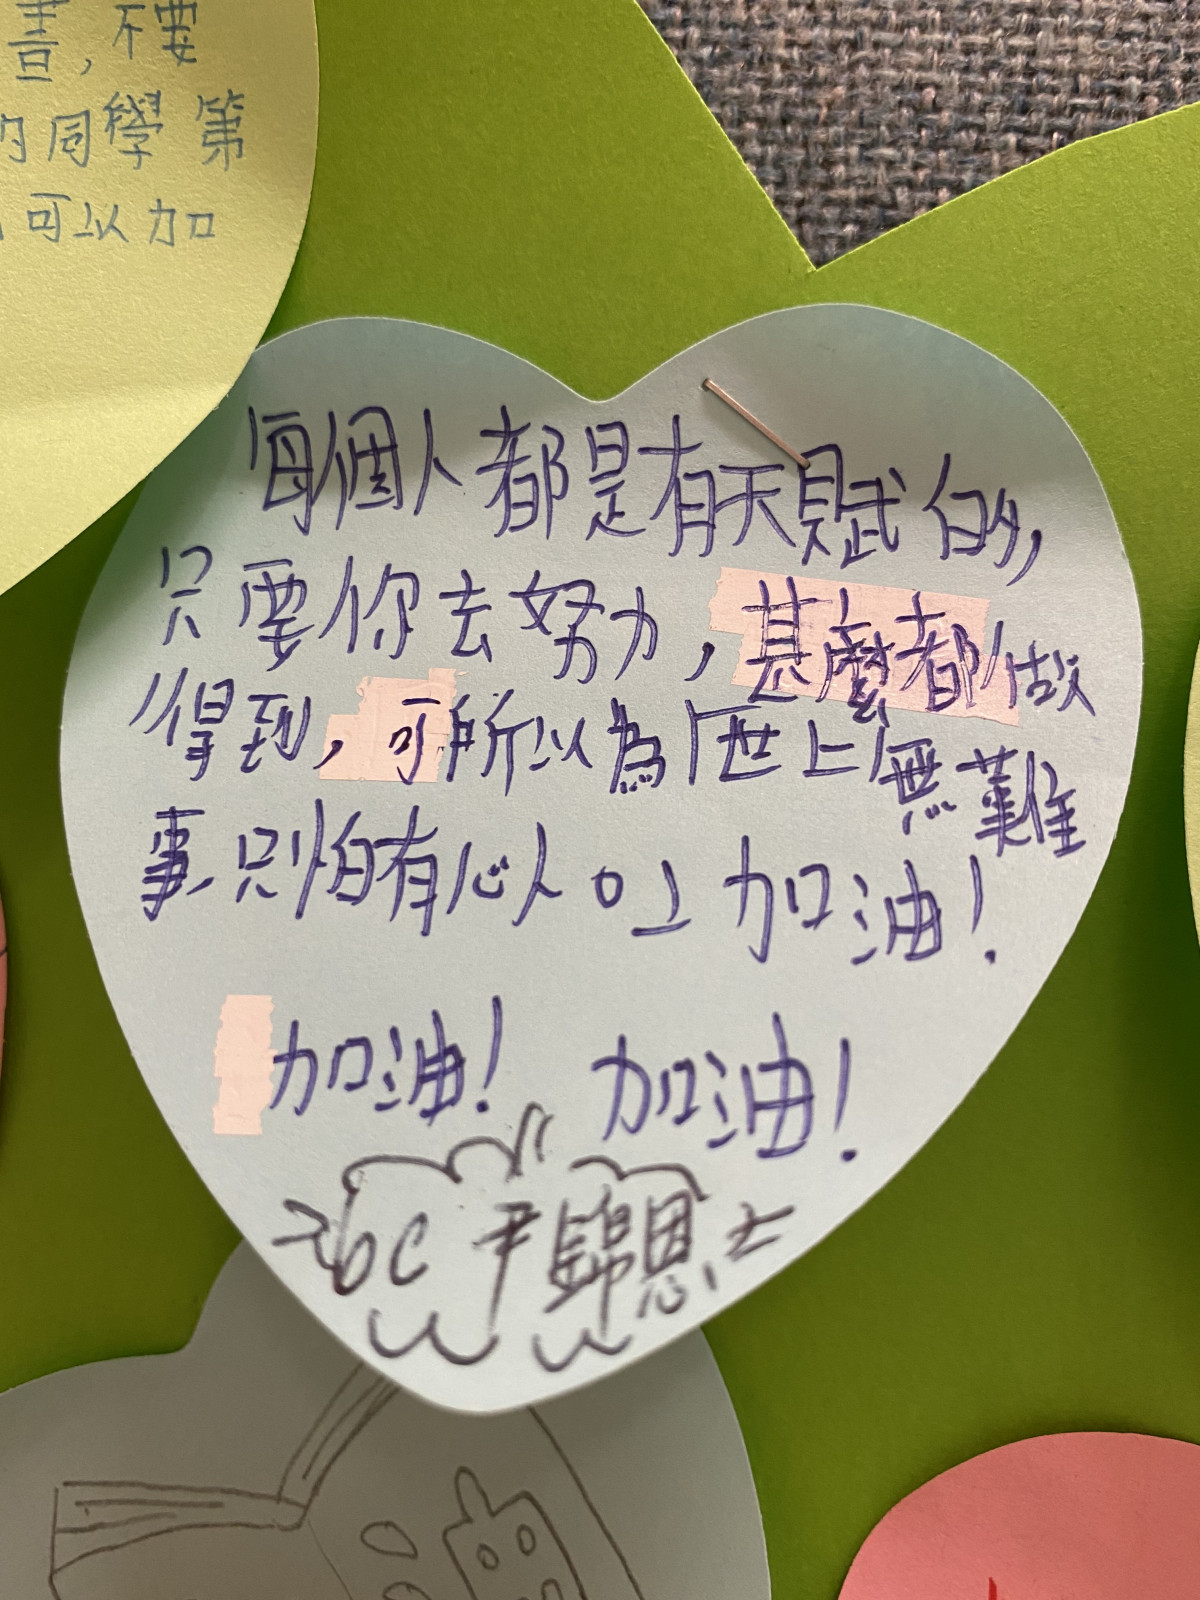 畫,不要
的同學 第
可以加
每個人都是有天賦的,
只要你去努力,甚麼都做
得到,可所以為「世上無難
事,只怕有心人」加油!
加油! 加油!
尹錦恩